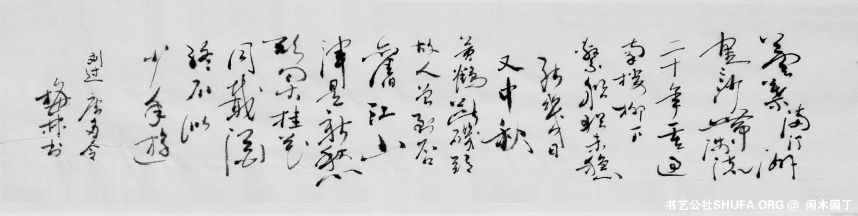 蘆葉满汀洲
寒沙带浅流
二十年重过
南楼柳下
繫船犹未稳
能几日
又中秋
黄鹤断矶头
故人曾到否
舊江山
浑是新愁
欲买桂花
同载酒
终不似
少年游
刘过 唐多令
梅林书
书艺公社SHUFA.ORG @ 闲木园丁